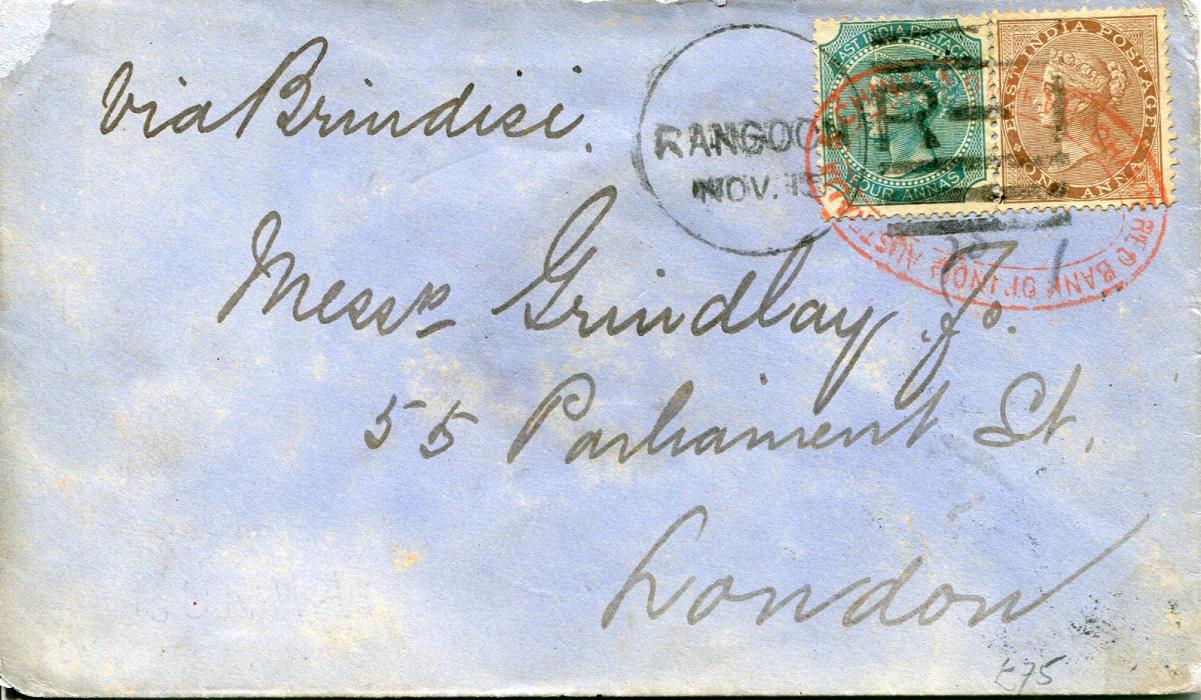 Via Brindisi.
RANGOON
NOV. 15
R - 1
EAST INDIA POSTAGE
FOUR ANNAS
EAST INDIA POSTAGE
ONE ANNA
BANK OF INDIA AUST
Messrs Grindlay
55 Parliament St.
London
£75